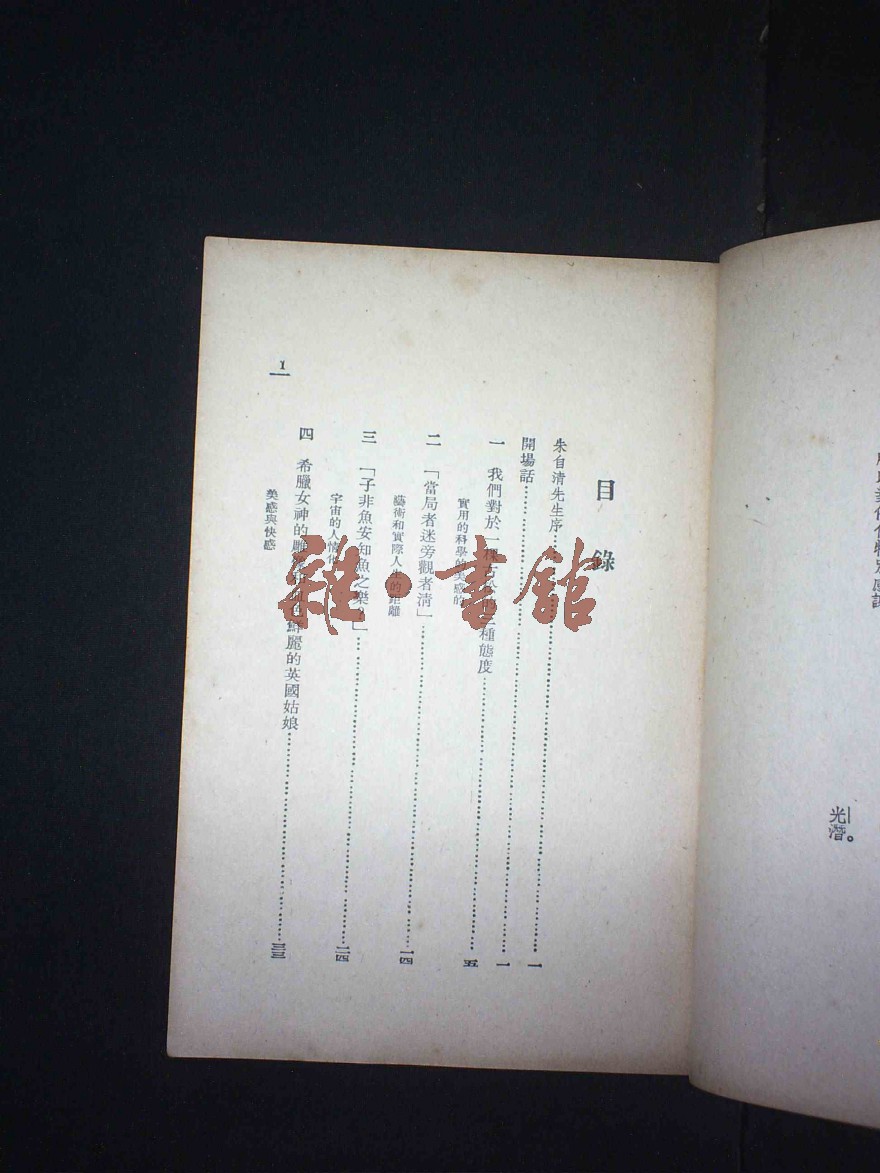 光潛。
目錄
朱自清先生序……一
開場話……一
一 我們對於一棵古松的三種態度……五
實用的科學的美感的
二 「當局者迷旁觀者清」……一四
藝術和實際人生的距離
三 「子非魚安知魚之樂？」……二四
宇宙的人情化
四 希臘女神的雕像和血色鮮麗的英國姑娘……三三
美感與快感
1
雜·書館